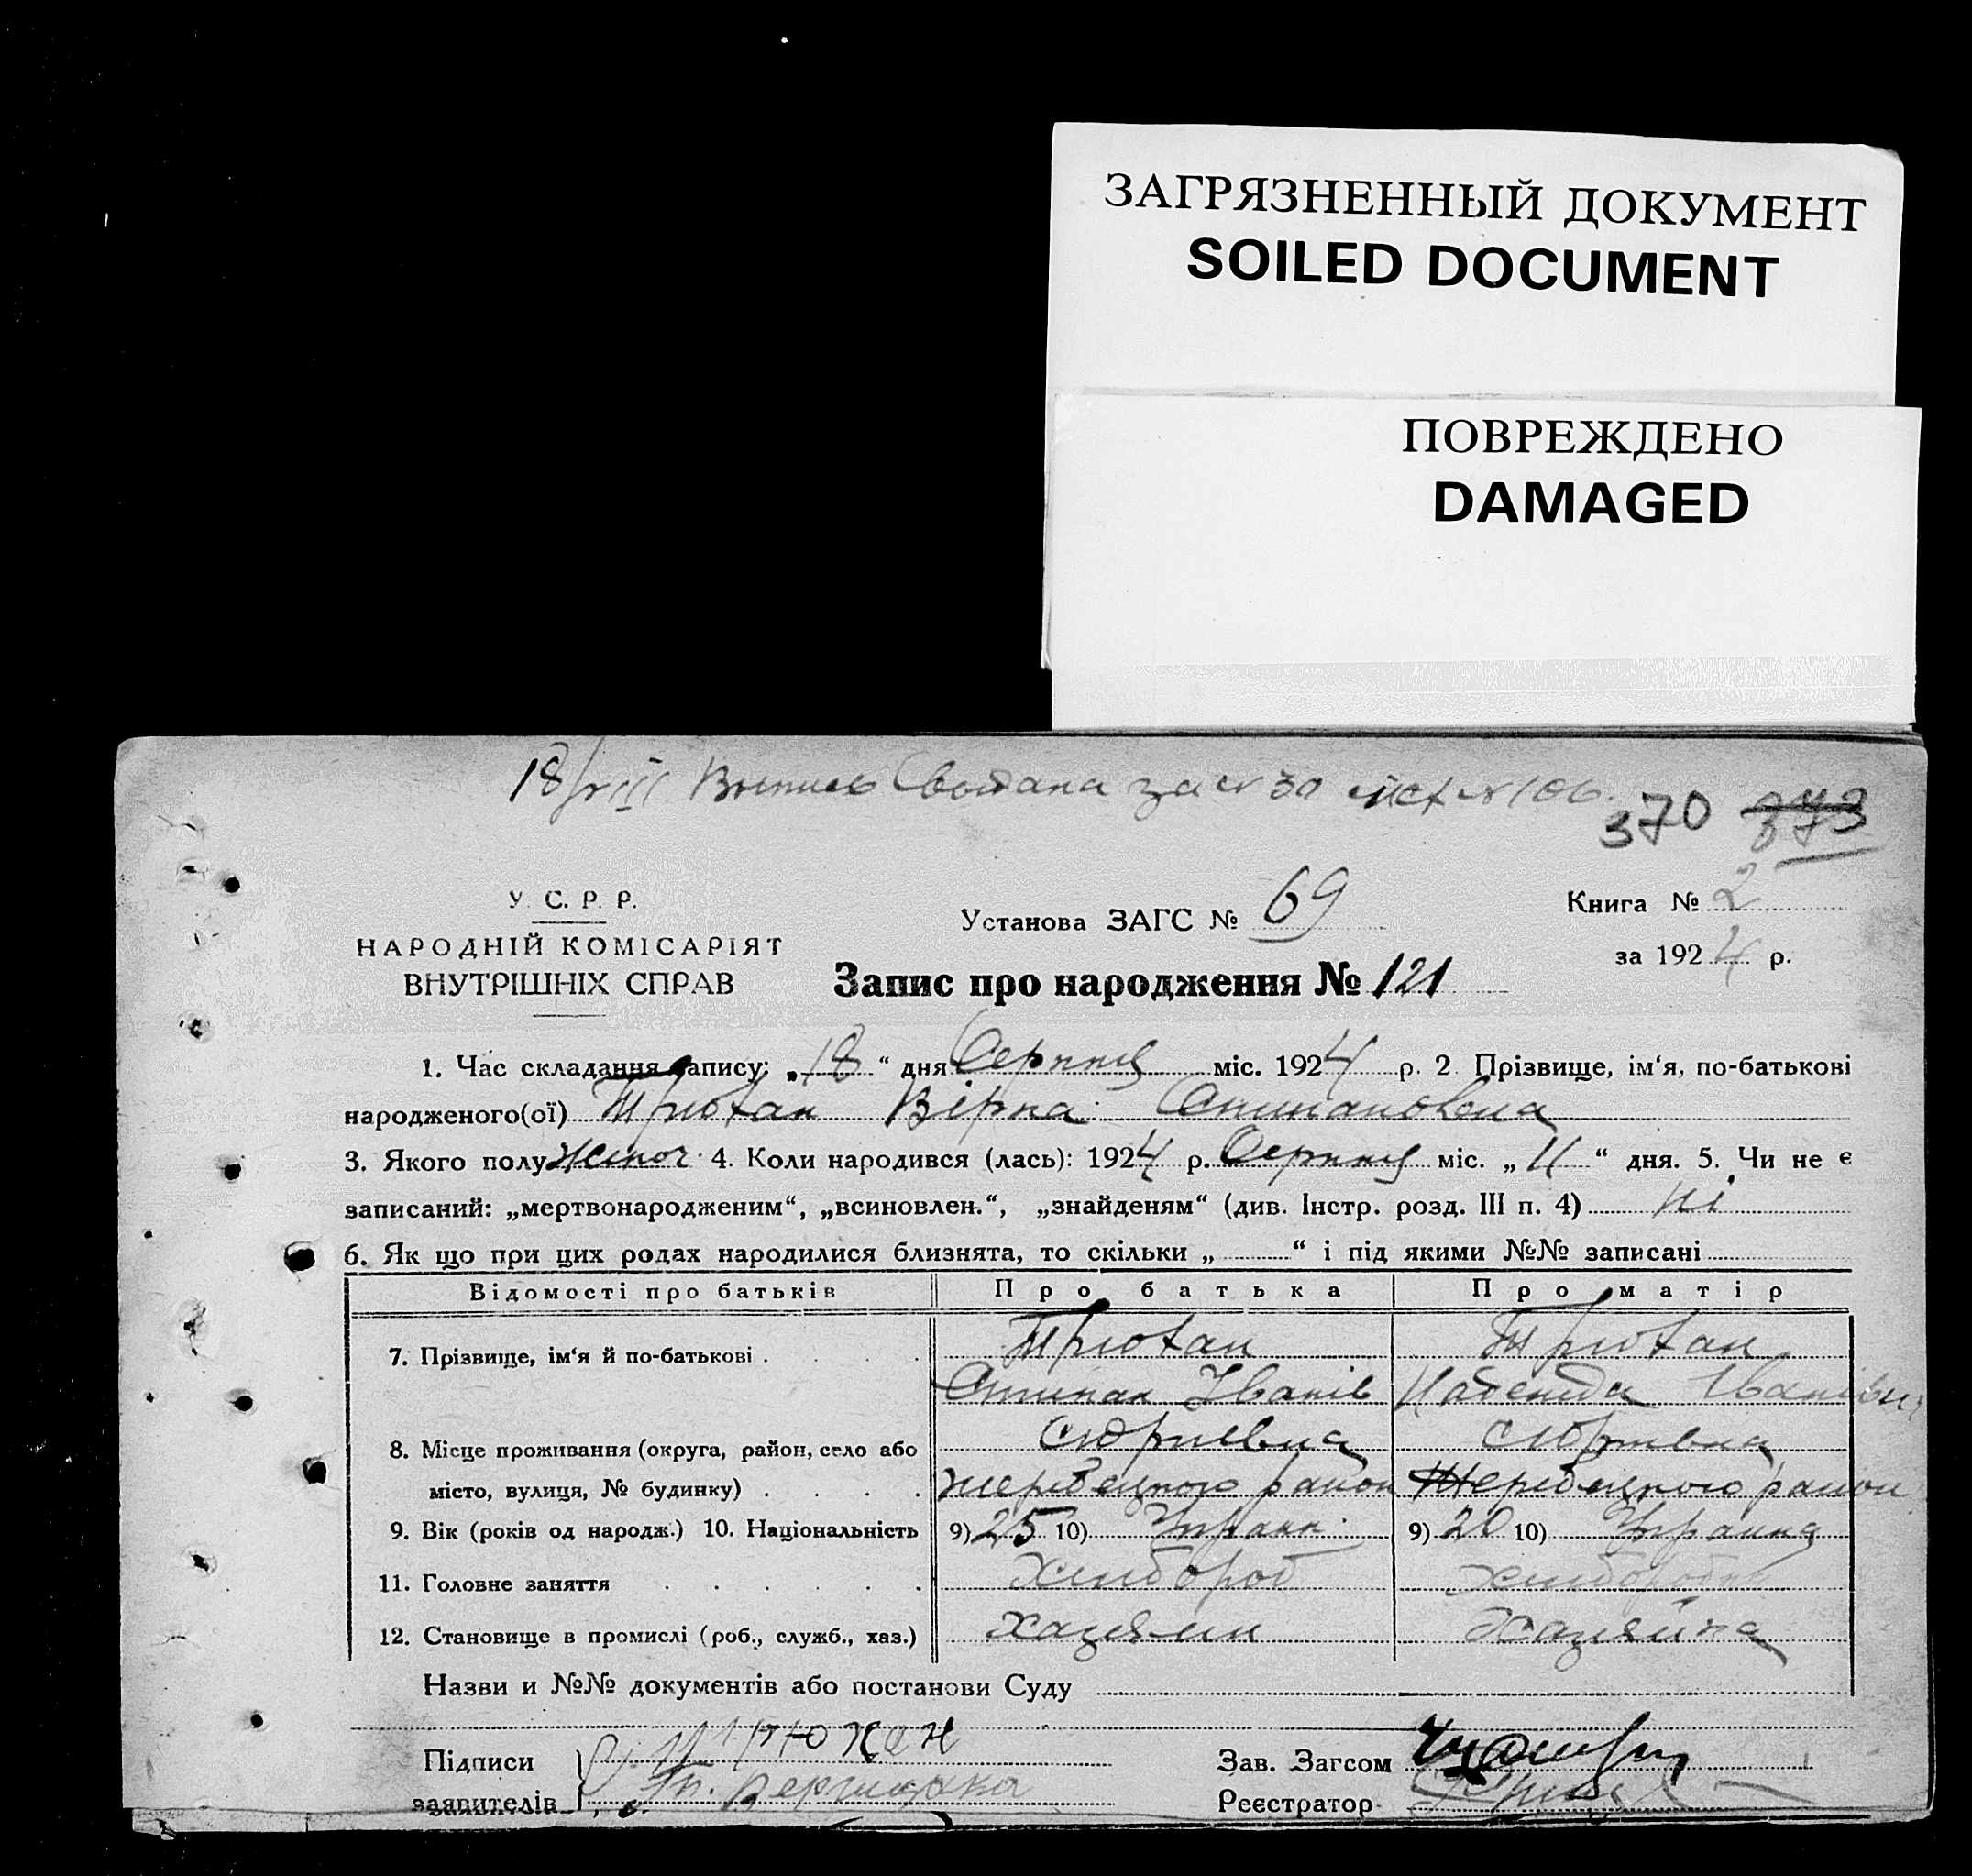 ЗАГРЯЗНЕННЫЙ ДОКУМЕНТ
SOILED DOCUMENT
ПОВРЕЖДЕНО
DAMAGED
18/VIII Выпись за № 106.
370 373
У. С. Р. Р.
НАРОДНІЙ КОМІСАРІЯТ
ВНУТРІШНІХ СПРАВ
Установа ЗАГС № 69
Книга № 2
за 1924 р.
Запис про народження № 121
1. Час складання запису: „18“ дня Серпня міс. 1924 р. 2 Прізвище, ім‘я, по-батькові
народженого(ої) Трюхан Вірка Степановна
3. Якого полу женоч. 4. Коли народився (лась): 1924 р. Серпня міс. „11“ дня. 5. Чи не є
записаний: „мертвонародженим“, „всиновлен.“, „знайденям“ (див. Інстр. розд. III п. 4) ні
6. Як що при цих родах народилися близнята, то скільки „ “ і під якими №№ записані
Відомості про батьків Про батька Про матір
7. Прізвище, ім‘я й по-батькові . . . . Трюхан Трюхан
Степан Іванів Надежда Іванівна
8. Місце проживання (округа, район, село або Сюріевка Сюрівка
місто, вулиця, № будинку) . . . . Жеребецкого район Жеребецкого район
9. Вік (років од народж.) 10. Національність 9) 25 10) Украин. 9) 20 10) Украинка
11. Головне заняття . . . . . . Хлибороб Хлиборобка
12. Становище в промислі (роб., служб., хаз.) Хацяин Хацяйка
Назви и №№ документів або постанови Суду
Підписи Трюхан Зав. Загсом
заявителів Реєстратор